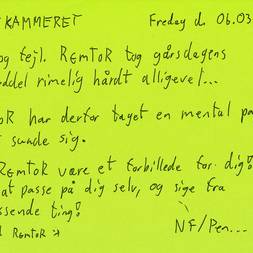 KAMMERET Fredag d. 06.03
og fejl. REMToR tog gårsdagens
ddel rimelig hårdt alligevel...
oR har derfor taget en mental pa
t sunde sig.
REMToR være et forbillede for dig!
at passe på dig selv, og sige fra
ssende ting!
REMToR :* NF/Pen...